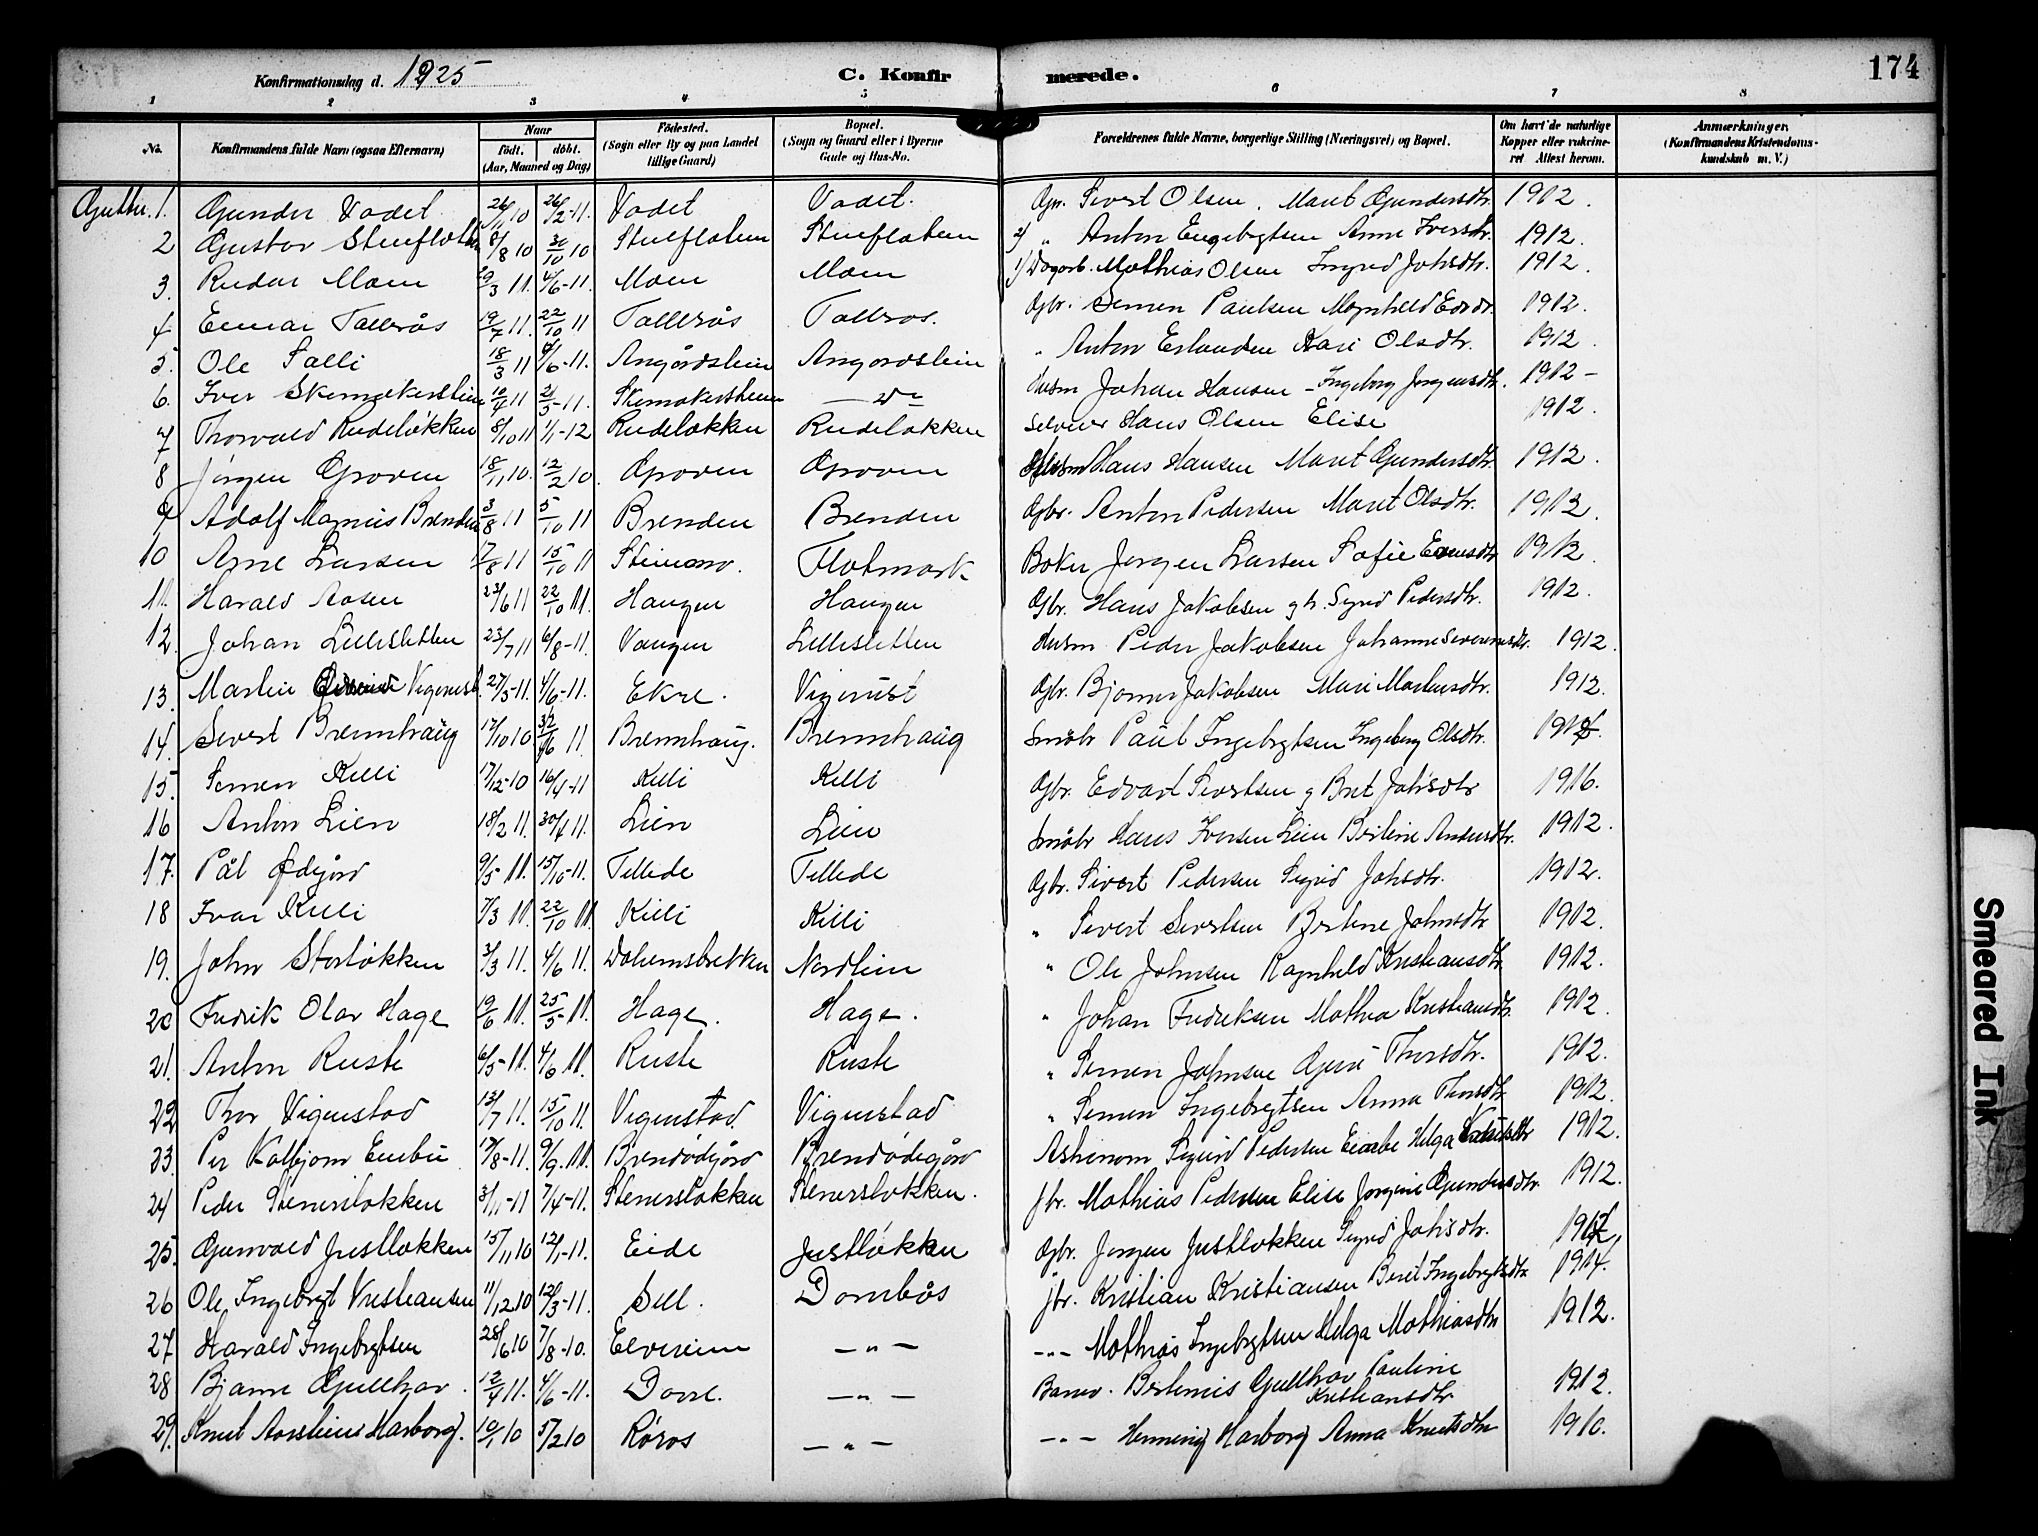 Konfirmationsdag d. 1925 C. Konfirmerede. 174
1 2 3 4 5 6 7 8
No. Konfirmandens fulde Navn (ogsaa Efternavn) Naar født. døbt. (Aar, Maaned og Dag) Fødested. (Sogn eller By og paa Landet tillige Gaard) Bopæl. (Sogn og Gaard eller i Byerne Gade og Hus-No. Forældrenes fulde Navne, borgerlige Stilling (Næringsvei) og Bopæl. Om havt de naturlige Kopper eller vakcineret Attest herom. Anmærkninger. (Konfirmandens Kristendomskundskab m. V.)
Gutter. 1. Gunder Vadet 26/11 10 26/2-11. Vadet Vadet. Gbr. Sivert Olsen. Marit Gundersdtr. 1912.
2 Gustav Stuefloten 8/8 10 30/10 10 Stuefloten Stuefloten 2) " Anton Engebrgtsen Anne Iversdtr. 1912.
3. Reidar Moen 29/3 11. 4/6-11. Moen Moen 1) Dagarb. Mathias Olsen Ingrid Johsdtr. 1912.
4 Einar Tallerås 19/7 11. 22/10 11 Tallerås Talleros. Gbr. Simen Paulsen Magnhild Edv.dr. 1912.
5. Ole Salli 18/3 11 4/6-11. Angårdslien Angardslien " Anton Erlandsen Kari Olsdtr. 1912
6. Iver Skomakerstuen 10/4 11 21/5-11. Skomakerstuen — do Husm Johan Hansen - Ingeborg Jørgensdtr. 1912 -
7 Thorvald Rudeløkken 8/10 11 1/1-12 Rudeløkken Rudeløkken Selveier Hans Olsen Elise 1912.
8 Jørgen Groven 18/11 10. 12/2 10. Groven Groven Husm Hans Hansen Marit Gundersdtr. 1912.
9 Adolf Magnus Brenden 3/8 11 5/10 11 Brenden Brenden Gbr. Anton Pedersen Marit Olsdtr. 1912.
10 Arne Larsen 17/8 11 15/10 11 Steimo. Flatmark Baker Jørgen Larsen Sofie Evensdtr 1912.
11. Harald Aasen 23/6 11 22/10 11. Haugen Haugen Gbr. Hans Jakobsen g h. Sigrid Pedersdtr. 1912.
12. Johan Lillesletten 23/7 11 6/8-11. Vangen Lillesletten Husm Peder Jakobsen Johanne Severinsdtr. 1912.
13. Martin Vigerust. 27/5-11. 4/6-11. Ekre. Vigerust Gbr. Bjørner Jakobsen Mari Mathisdtr. 1912.
14. Sivert Brennhaug 17/10 10 11. Brennhaug. Brennhaug Småbr Paul Ingebrgtsen Ingeborg Olsdtr.
15. Simen Killi 17/12-10 16/4-11 Killi Killi Gbr. Edvart Sivertsen g Brit Johsdtr 1916.
16 Anton Lien 18/2 11. 30/4 11. Lien Lien Småbr Hans Iversen Lien Beritine Andersdtr. 1912.
17. Pål Ødegård 9/5 11. 15/10-11. Tellede Tellede Gbr. Sivert Pedersen Sigrid Johsdtr. 1912.
18 Ivar Killi 7/3 11. 22/10 11. Killi Killi " Sivert Sivertsen Beritine Johnsdtr 1912.
19. John Storløkken 3/3 11. 4/6 11. Dalumsbrekken Nordlien " Ole Johnsen Ragnhild Kristiansdtr 1912.
20 Fredrik Olav Hage 19/6 11. 25/5-11. Hage. Hage. " Johan Fredriksen Mathea Kristiansdtr. 1912.
21. Anton Ruste 6/5-11. 4/6 11. Ruste Ruste " Simen Johnsen Guri Thorsdtr. 1912.
22 Thor Vigenstad 13/7 11. 15/10 11. Vigenstad. Vigenstad " Simen Ingebrgtsen Anna Thorsdtr 1912.
23. Per Kolbjørn Einbu 17/8-11. 9/9. 11. Brendødegård Brendødegård Sigurd Pedersen Helga Knutsdtr 1912.
24 Peder Stenersløkken 3/11-11 7/4-11. Stenersløkken Stenersløkken. fbr. Mathias Pedersen Elise Jørgine Gundersdtr. 1912.
25. Gunvald Justløkken 15/11 10 12/1-11. Eide Justløkken Gbr. Jørgen Justløkken Sigrid Johsdtr. 1912
26 Ole Ingebrgt Kristiansen 11/12 10 12/3-11. Sell. Dombås jbr. Kristian Kristiansen Berit Ingebrgtsdtr 1914.
27 Harald Ingebrgtsen 28/6 10 7/8-10. Elverum — " — - " - Mathias Ingebrgtsen Helga Mathiasdtr 1912.
28 Bjarne Gullhav. 12/4 11. 4/6-11. Dovre. — " — Banev. Bertinius Gullhav Pauline Kristiansdtr. 1912.
29. Knut Aarstein Harborg. 10/1 10 5/2 10 Røros — " — - " - Henning Harborg Anna Knutsdtr 1910.
Smeared Ink